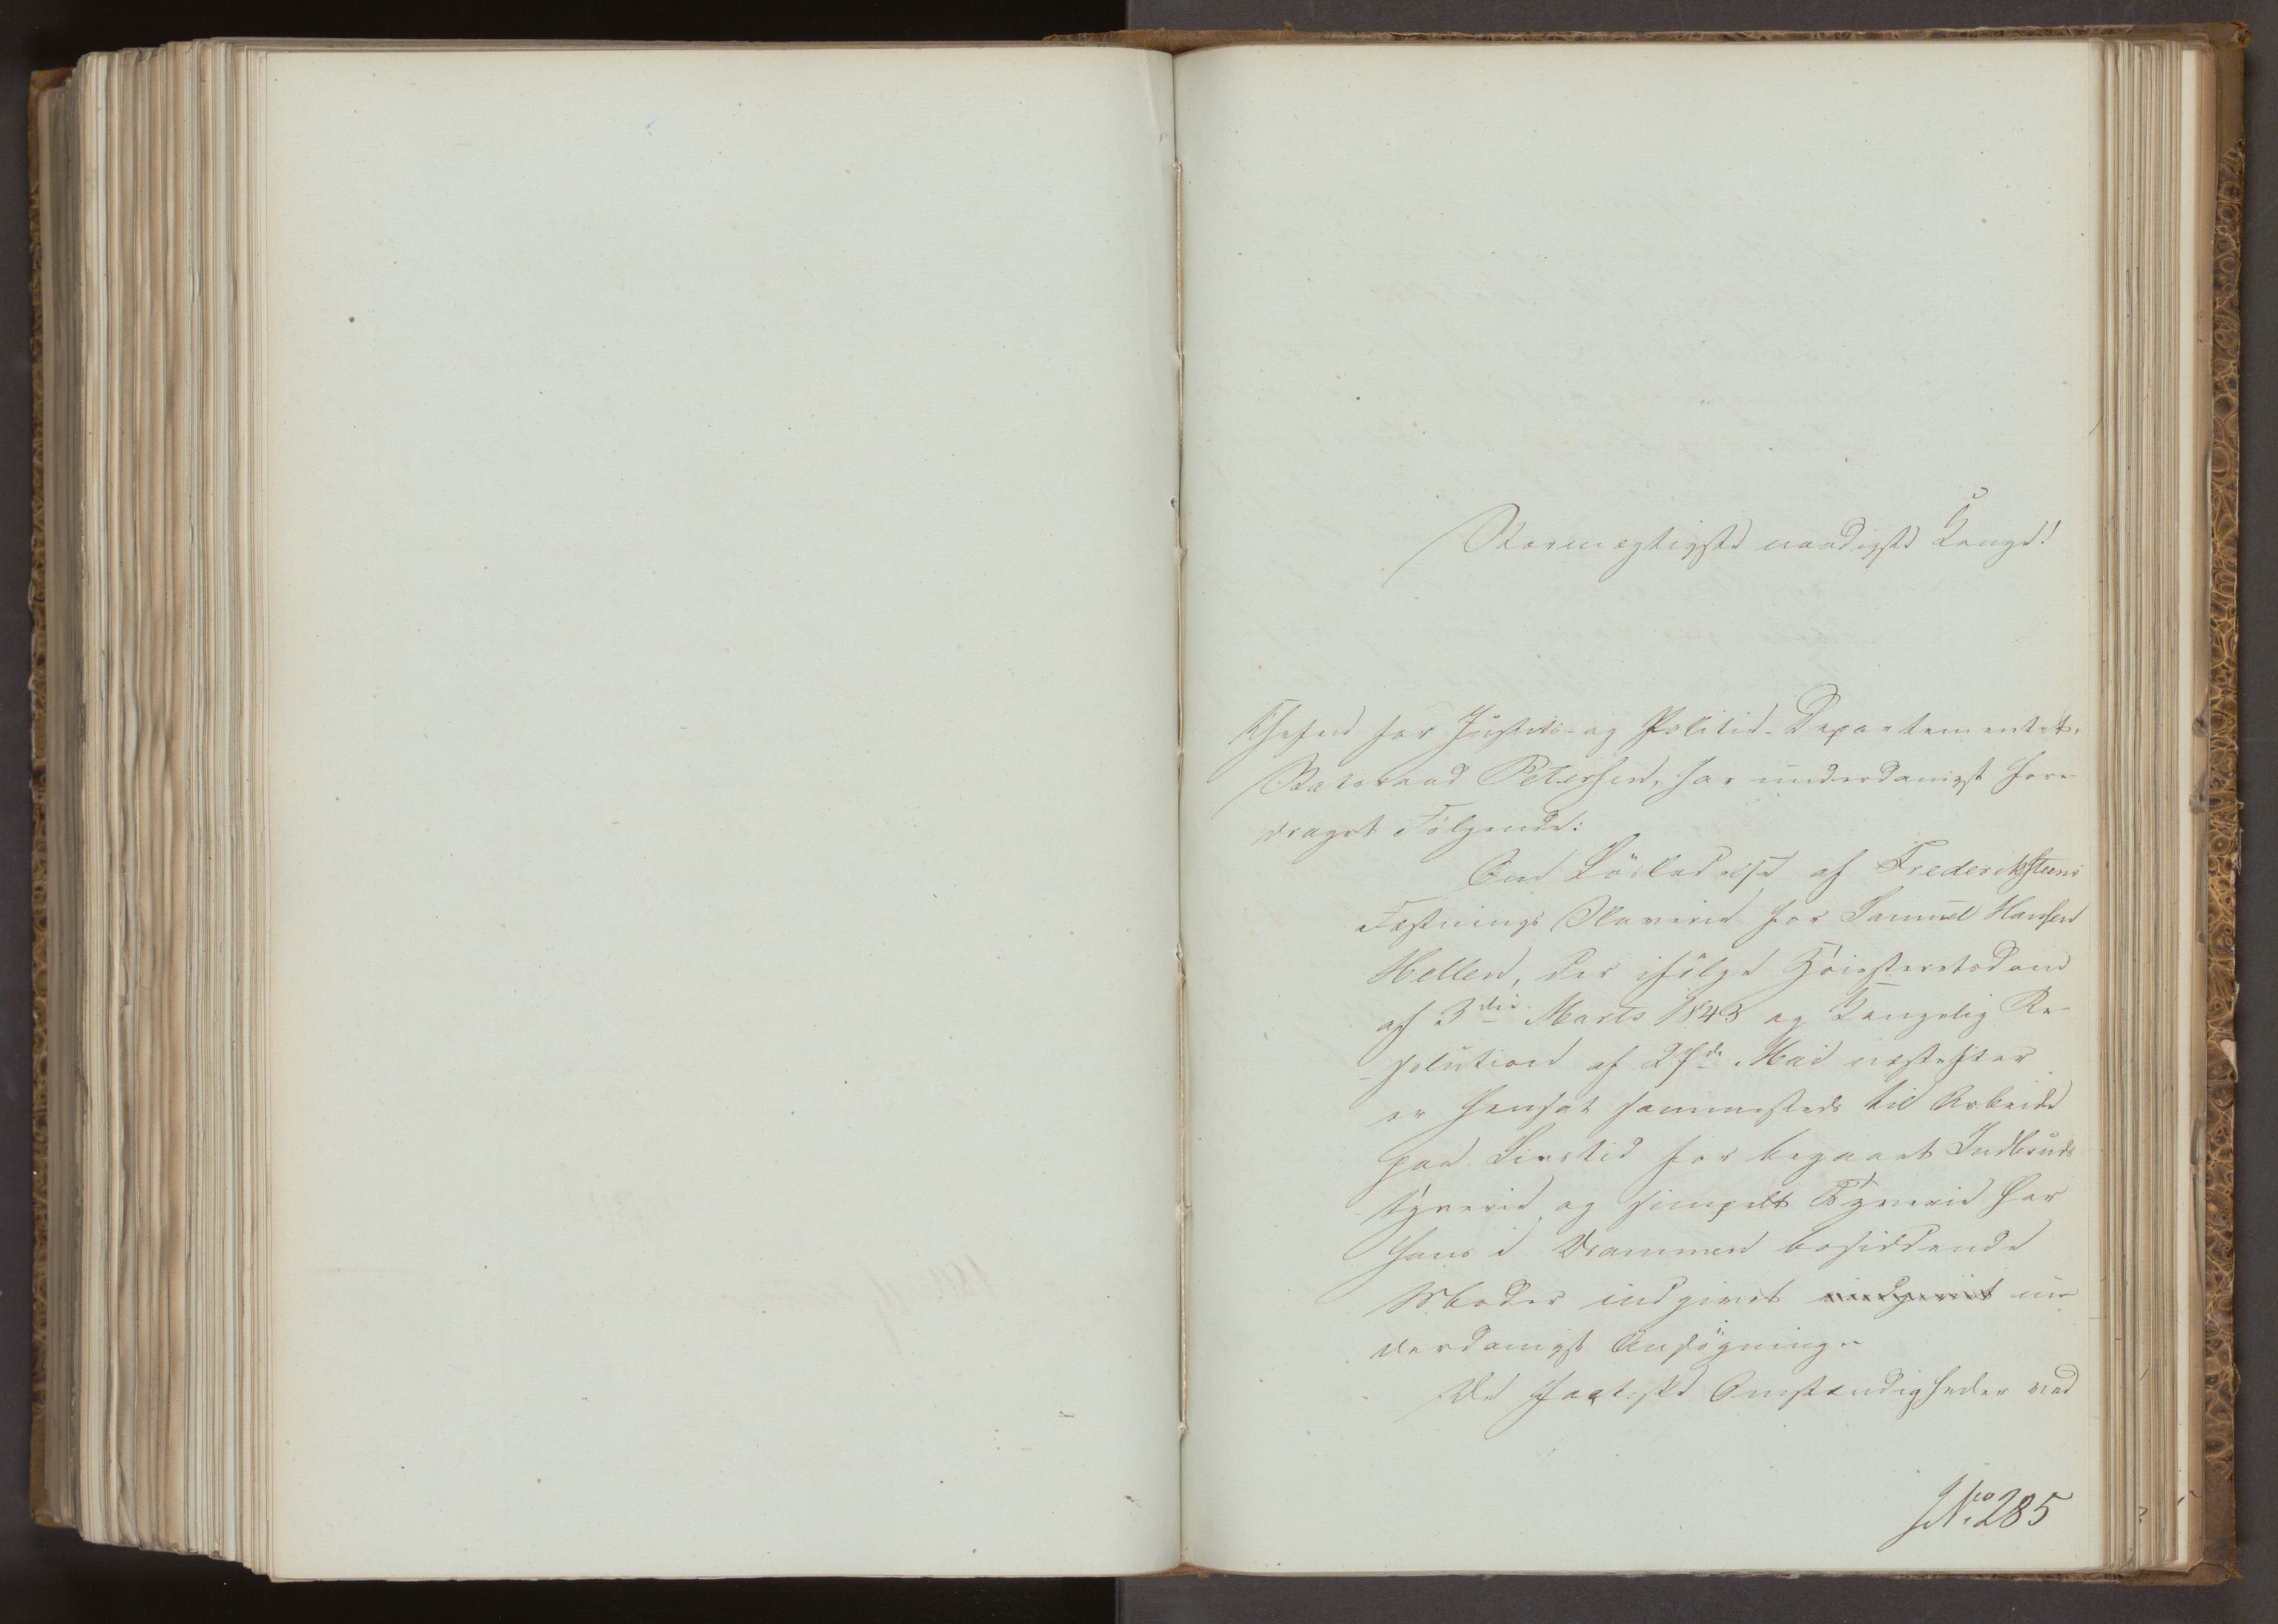 Stormægtigste naadigste Konge!
Chefen for Justits- og Politie-Departementet,
Statsraad Petersen, har underdanigst fore-
draget Følgende:
Om Løsladelse af Frederikssteens
Fæstnings Slaverie for Samuel Hansen
Hellen, der ifølge Høiesteretsdom
af 3die Marts 1843 og Kongelig Re-
solution af 27de Mai næstefter
er hensat sammesteds til Arbeide
paa Livstid for begaaet Indbruds
tyverie og simpelt Tyverie har
hans i Drammen bosiddende
Moder indgivet indgivet un
derdanigst Ansøgning.
De factiske Omstændigheder ved
No. 285